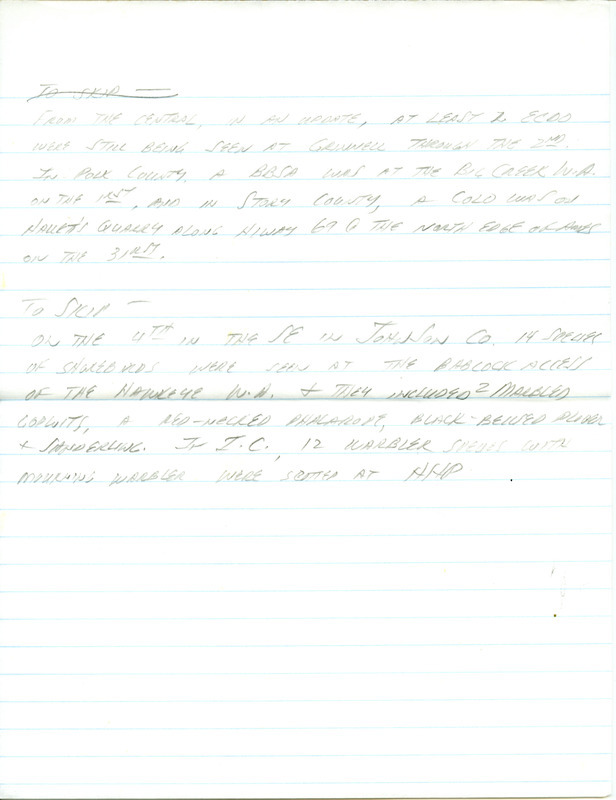 TO SKIP —
FROM THE CENTRAL, IN AN UPDATE, AT LEAST 2 ECDO
WERE STILL BEING SEEN AT GRINNELL THROUGH THE 2ND.
IN POLK COUNTY, A BBSA WAS AT THE BIG CREEK W.A.
ON THE 1ST, AND IN STORY COUNTY, A COLO WAS ON
HALLETT'S QUARRY ALONG HIWAY 69 @ THE NORTH EDGE OF AMES
ON THE 31ST.
TO SKIP —
ON THE 4TH IN THE SE IN JOHNSON CO. 14 SPECIES
OF SHOREBIRDS WERE SEEN AT THE BABCOCK ACCESS
OF THE HAWKEYE W.A. + THEY INCLUDED 2 MARBLED
GODWITS, A RED-NECKED PHALAROPE, BLACK-BELLIED PLOVER
+ SANDERLING. IN I.C., 12 WARBLER SPECIES WITH
MOURNING WARBLER WERE SPOTTED AT HHP